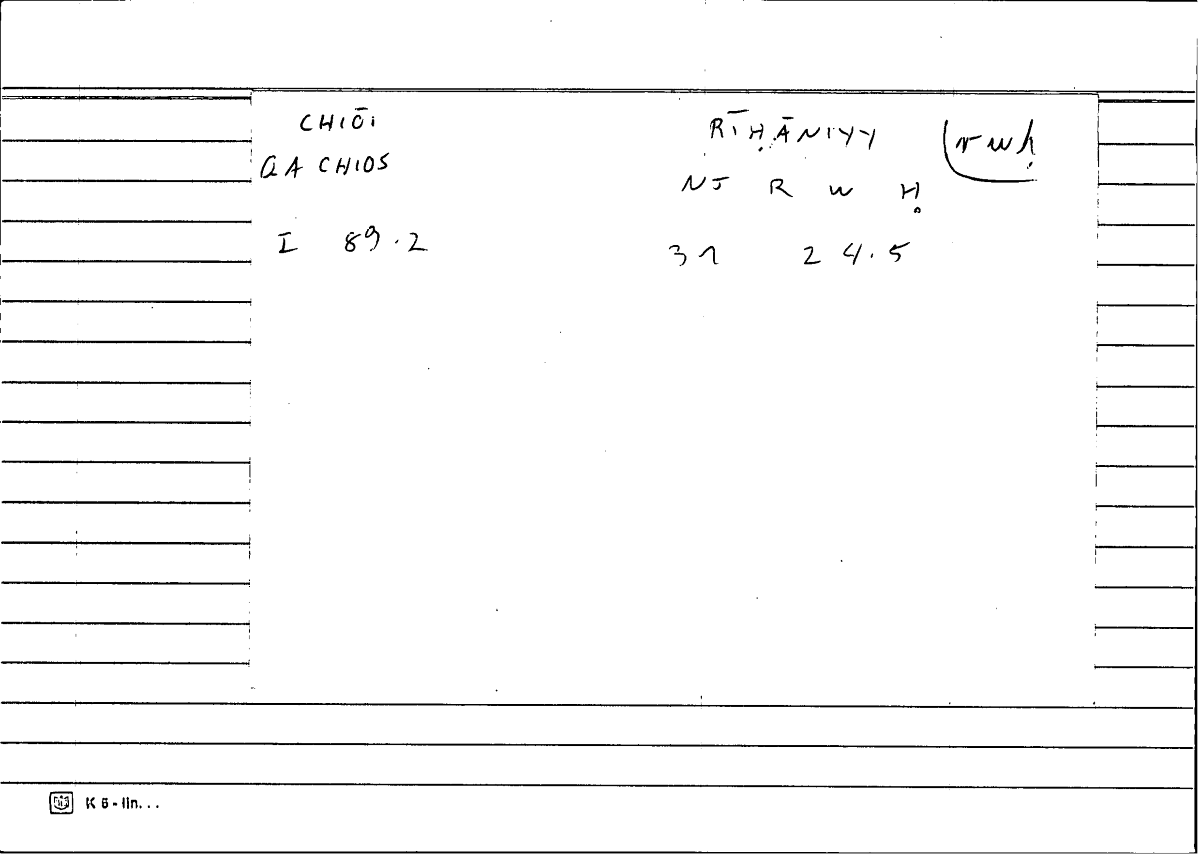 CHIŌI
RĪḤĀNIYY
rwḥ
QA CHIOS
NJ R W Ḥ
I 89.2
31 24.5
K 6 - lin...